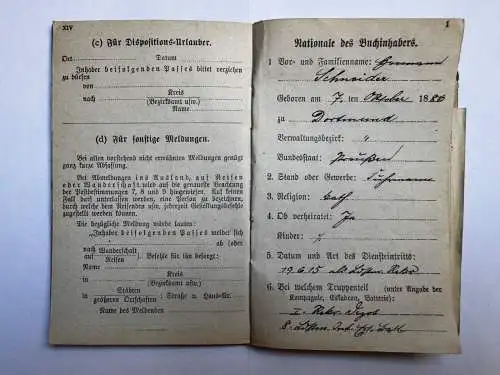 XIV
(c) Für Dispositions-Urlauber.
Ort Datum
Inhaber beifolgenden Passes bittet verziehen
zu dürfen
von
nach Kreis
(Bezirksamt usw.)
Name
(d) Für sonstige Meldungen.
Bei allen vorstehend nicht erwähnten Meldungen genügt
ganz kurze Abfassung.
Bei Meldungen ins Ausland, auf Reisen
oder Wanderschaft wird auf die genaueste Beachtung
der Paßbestimmungen 7, 8 und 9 hingewiesen.
Die bezügliche Meldung würde lauten:
"Inhaber beifolgenden Passes meldet sich
ab (oder)
nach Wanderschaft
auf Reisen). Befehle für ihn besorgt:
Name
in Kreis
(Bezirksamt usw.)
Städten
in größeren Ortschaften: Straße u. Haus-Nr.
Name des Meldenden
1
Nationale des Buchinhabers.
1 Vor- und Familienname: Hermann
Schneider
Geboren am 7. ten Oktober 1880
zu Dortmund
Verwaltungsbezirk: "
Bundesstaat: Preußen
2. Stand oder Gewerbe: Fuhrmann
3. Religion: kath.
4. Ob verheiratet: Ja
Kinder:
5. Datum und Art des Diensteintritts:
19.6.15 als Rekr.
6. Bei welchem Truppenteil (unter Angabe der
Kompagnie, Eskadron, Batterie):
I. Rekr. Depot